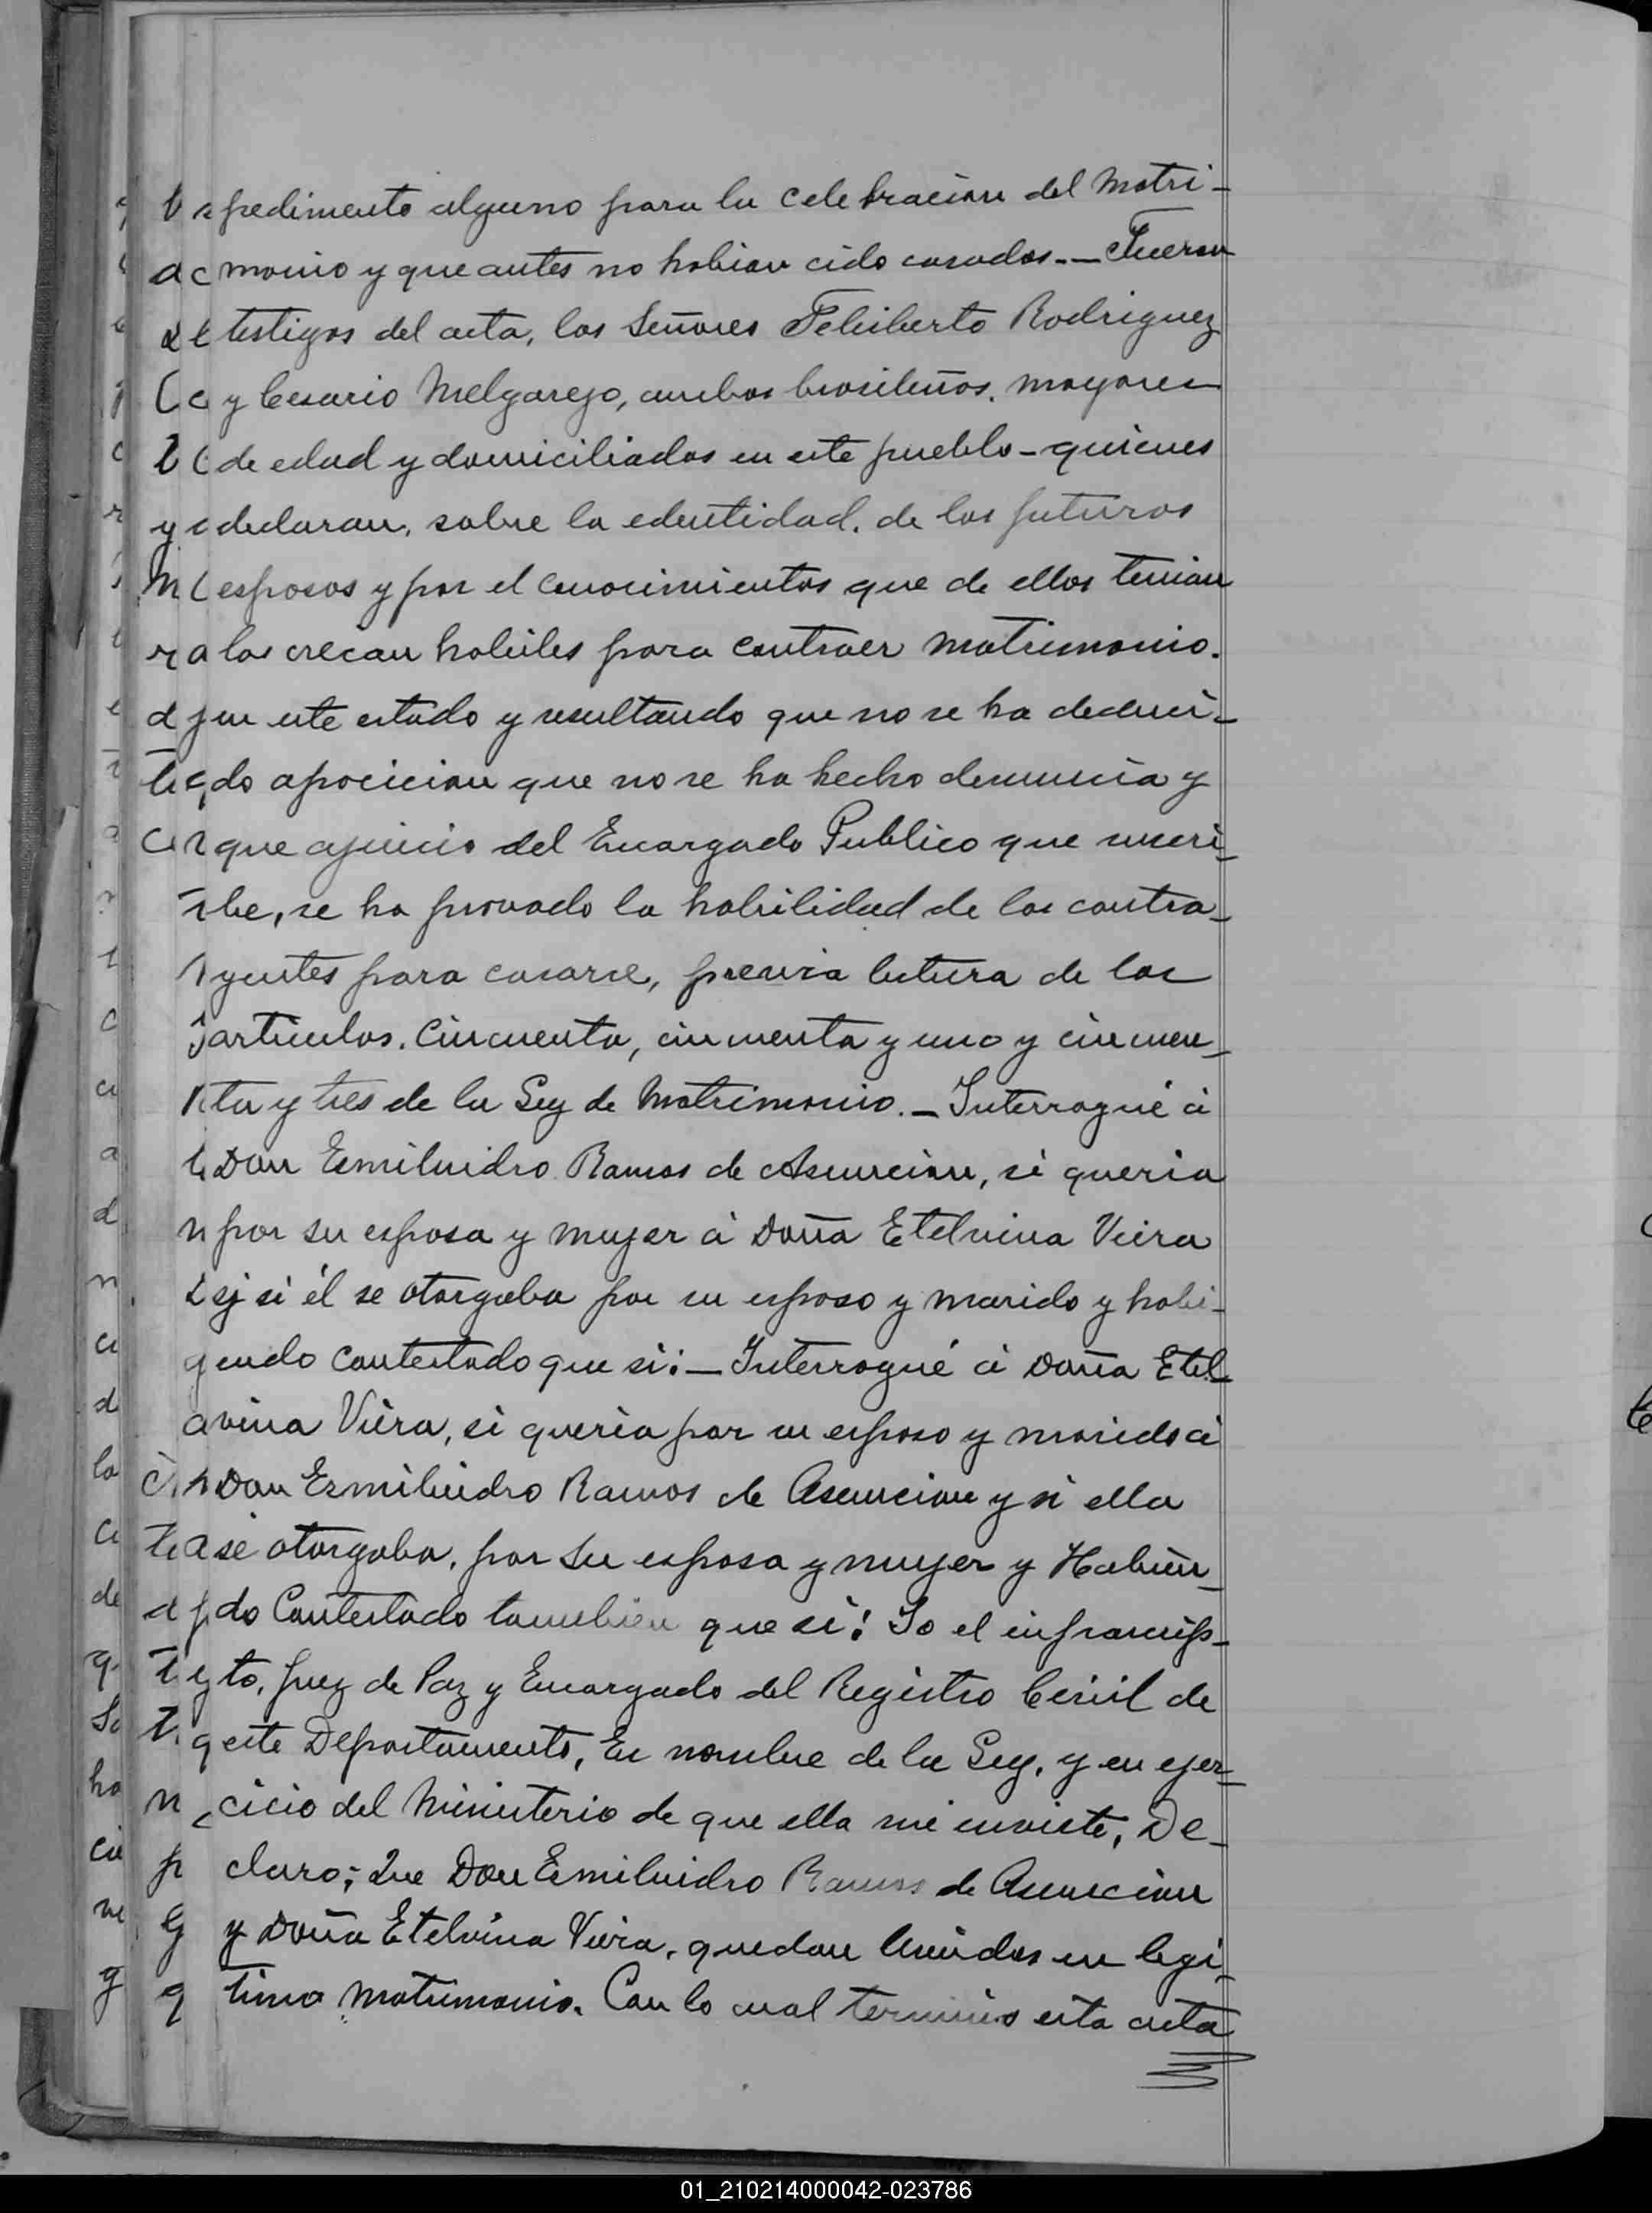 pedimento alguno para la celebracion del Matri-
monio y que antes no habian cido casados. — Fueron
testigos del acta, los Señores Feliberto Rodriguez
y Cesario Melgarejo, ambos brasileños, mayores
de edad y domiciliados en este pueblo - quienes
declaran, sobre la edentidad, de los futuros
esposos y por el conocimientos que de ellos tenian
los creian habiles para contraer matrimonio.
en este estado y resultando que no se ha deduci-
do aposicion que no se ha hecho denuncia y
que ajuicio del Encargado Publico que suscri-
be, se ha provado la habilidad de los contra-
yentes para casarse, previa letura de los
articulos. Cincuenta, cincuenta y uno y cincuen-
ta y tres de la Ley de Matrimonio. — Interrogué á
Don Esmiluidro Ramos de Asuncion, si queria
por su esposa y mujer á Doña Etelvina Vieira
y si él se otorgaba por su esposo y marido y habi-
endo Contestado que si: — Interrogué á Doña Etel-
vina Viera, si queria por su esposo y marido á
Don Esmiluidro Ramos de Asuncion y si ella
se otorgaba, por su esposa y mujer y Habien-
do Contestado tambien que si: Yo el infrascrip-
to, Juez de Paz y Encargado del Registro Civil de
este Departamento, En nombre de la Ley, y en ejer-
cicio del Ministerio de que ella me enviste, De-
claro; Que Don Esmiluidro Ramos de Asuncion
y Doña Etelvina Viera, quedan Unidos en legi-
timo matrimonio. Con lo cual termino esta acta
01_210214000042-023786